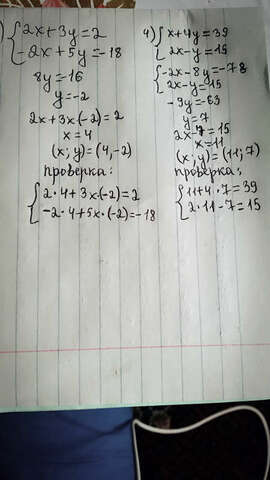 ) { 2x+3y=2
-2x+5y=-18
8y=-16
y=-2
2x+3x·(-2)=2
x=4
(x; y)=(4,-2)
проверка:
{ 2·4+3x·(-2)=2
-2·4+5x·(-2)=-18
4) { x+4y=39
2x-y=15
{ -2x-8y=-78
2x-y=15
-9y=-63
y=7
2x-7=15
x=11
(x; y)=(11; 7)
проверка;
{ 11+4·7=39
2·11-7=15